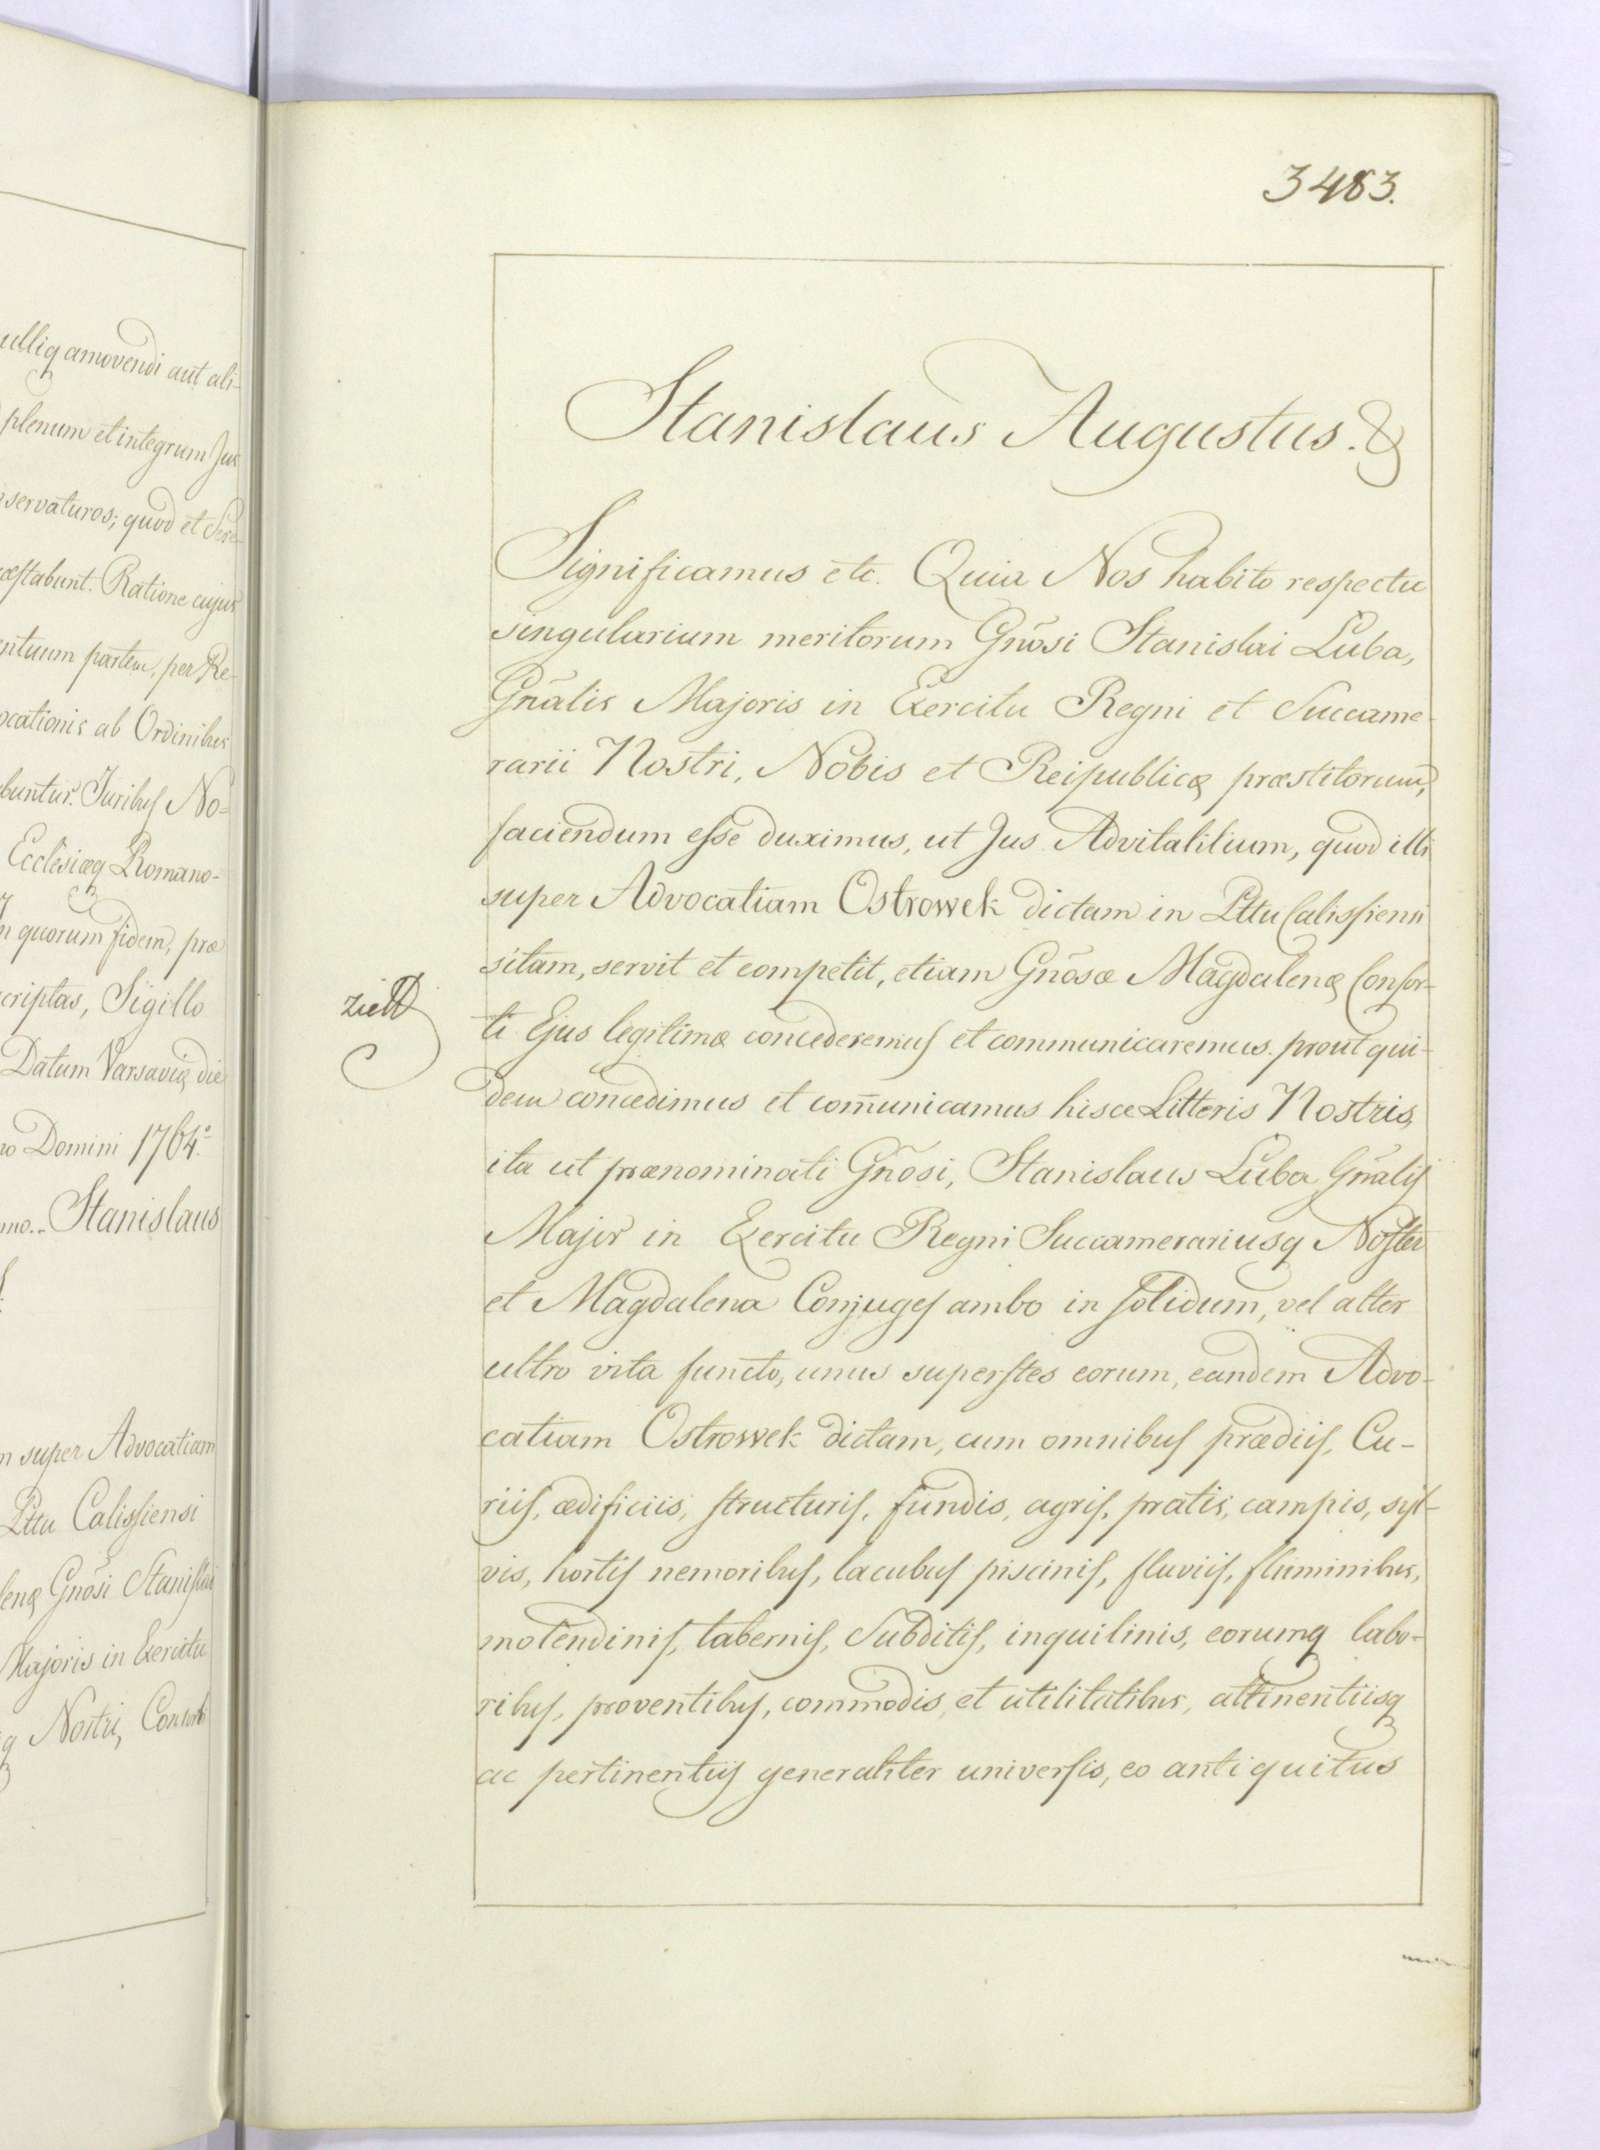 ulliq amovendi aut ali-
plenum et integrum Jus
servaturos; quod et Sere-
æstabunt. Ratione cujus
entuum partem, per Re-
ocationis ab Ordinibus
buntur. Juribus No-
Ecclesiæq Romano-
n quorum fidem, præ
criptas, Sigillo
Datum Varsaviæ die
no Domini 1764.º
mo.. Stanislaus
m super Advocatiam
Pttu Calissiensi
lenæ Gnōsi Stanislai
Majoris in Exercitu
q Nostri, Consorti
3483.
Stanislaus Augustus. &
Significamus etc. Quia Nos habito respectu
singularium meritorum Gnōsi Stanislai Luba,
Gnālis Majoris in Exercitu Regni et Succame-
rarii Nostri, Nobis et Reipublicæ præstitorum,
faciendum esse duximus, ut Jus Advitalitium, quod illi
super Advocatiam Ostrowek dictam in Pttu Calissiensi
sitam, servit et competit, etiam Gnōsæ Magdalenæ Consor-
ti Ejus legitimæ concederemus et communicaremus. prout qui-
dem concedimus et com̄unicamus hisce Litteris Nostris,
ita ut prænominati Gnōsi, Stanislaus Luba Gnālis
Major in Exercitu Regni Succamerariusq Noster
et Magdalena Conjuges ambo in solidum, vel alter
ultro vita functo, unus superstes eorum, eandem Advo-
catiam Ostrowek dictam, cum omnibus prædiis, Cu-
riis, ædificiis, structuris, fundis, agris, pratis, campis, syl-
vis, hortis nemoribus, lacubus piscinis, fluviis, fluminibus,
molendinis, tabernis, Subditis, inquilinis, eorumq labo-
ribus, proventibus, commodis, et utilitatibus, attinentiisq
ac pertinentiis generaliter universis, eo antiquitus